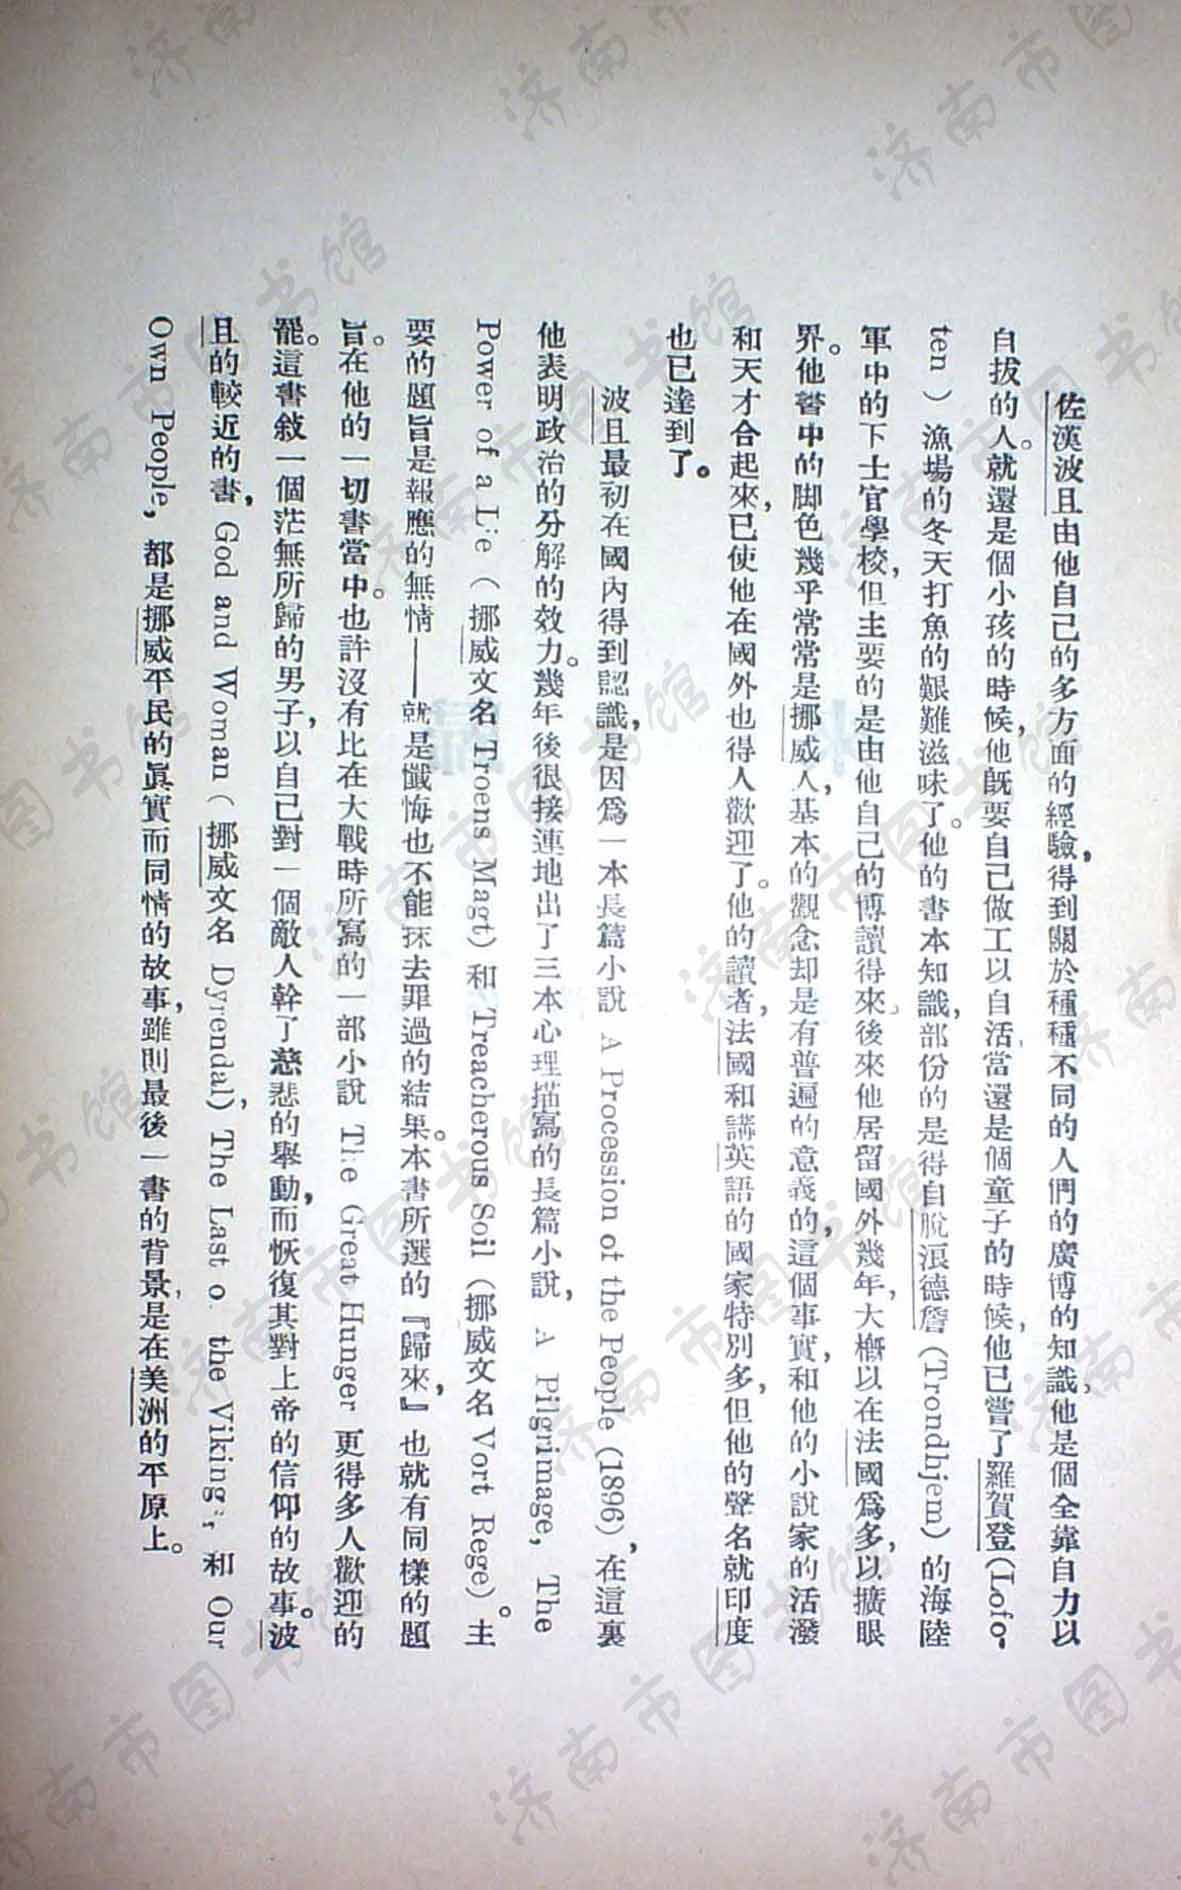 佐漢波且由他自己的多方面的經驗，得到關於種種不同的人們的廣博的知識。他是個全靠自力以
自拔的人。就還是個小孩的時候，他既要自己做工以自活，當還是個童子的時候，他已嘗了羅賀登（Lofo-
ten）漁場的冬天打魚的艱難滋味了。他的書本知識，部份的是得自脫浪德詹（Trondhjem）的海陸
軍中的下士官學校，但主要的是由他自己的博讀得來。後來他居留國外幾年，大概以在法國爲多，以擴眼
界。他書中的脚色幾乎常常是挪威人，基本的觀念却是有普遍的意義的，這個事實，和他的小說家的活潑
和天才合起來，已使他在國外也得人歡迎了。他的讀者，法國和講英語的國家特別多，但他的聲名就印度
也已達到了。
波且最初在國內得到認識，是因爲一本長篇小說 A Procession of the People (1896)，在這裏
他表明政治的分解的效力。幾年後很接連地出了三本心理描寫的長篇小說，A Pilgrimage, The
Power of a Lie（挪威文名 Troens Magt）和 Treacherous Soil（挪威文名 Vort Rege）。主
要的題旨是報應的無情——就是懺悔也不能抹去罪過的結果。本書所選的『歸來，』也就有同樣的題
旨。在他的一切書當中。也許沒有比在大戰時所寫的一部小說 The Great Hunger 更得多人歡迎的
罷。這書敍一個茫無所歸的男子，以自己對一個敵人幹了慈悲的舉動，而恢復其對上帝的信仰的故事。波
且的較近的書，God and Woman（挪威文名 Dyrendal），The Last o the Vikings，和 Our
Own People，都是挪威平民的眞實而同情的故事，雖則最後一書的背景，是在美洲的平原上。